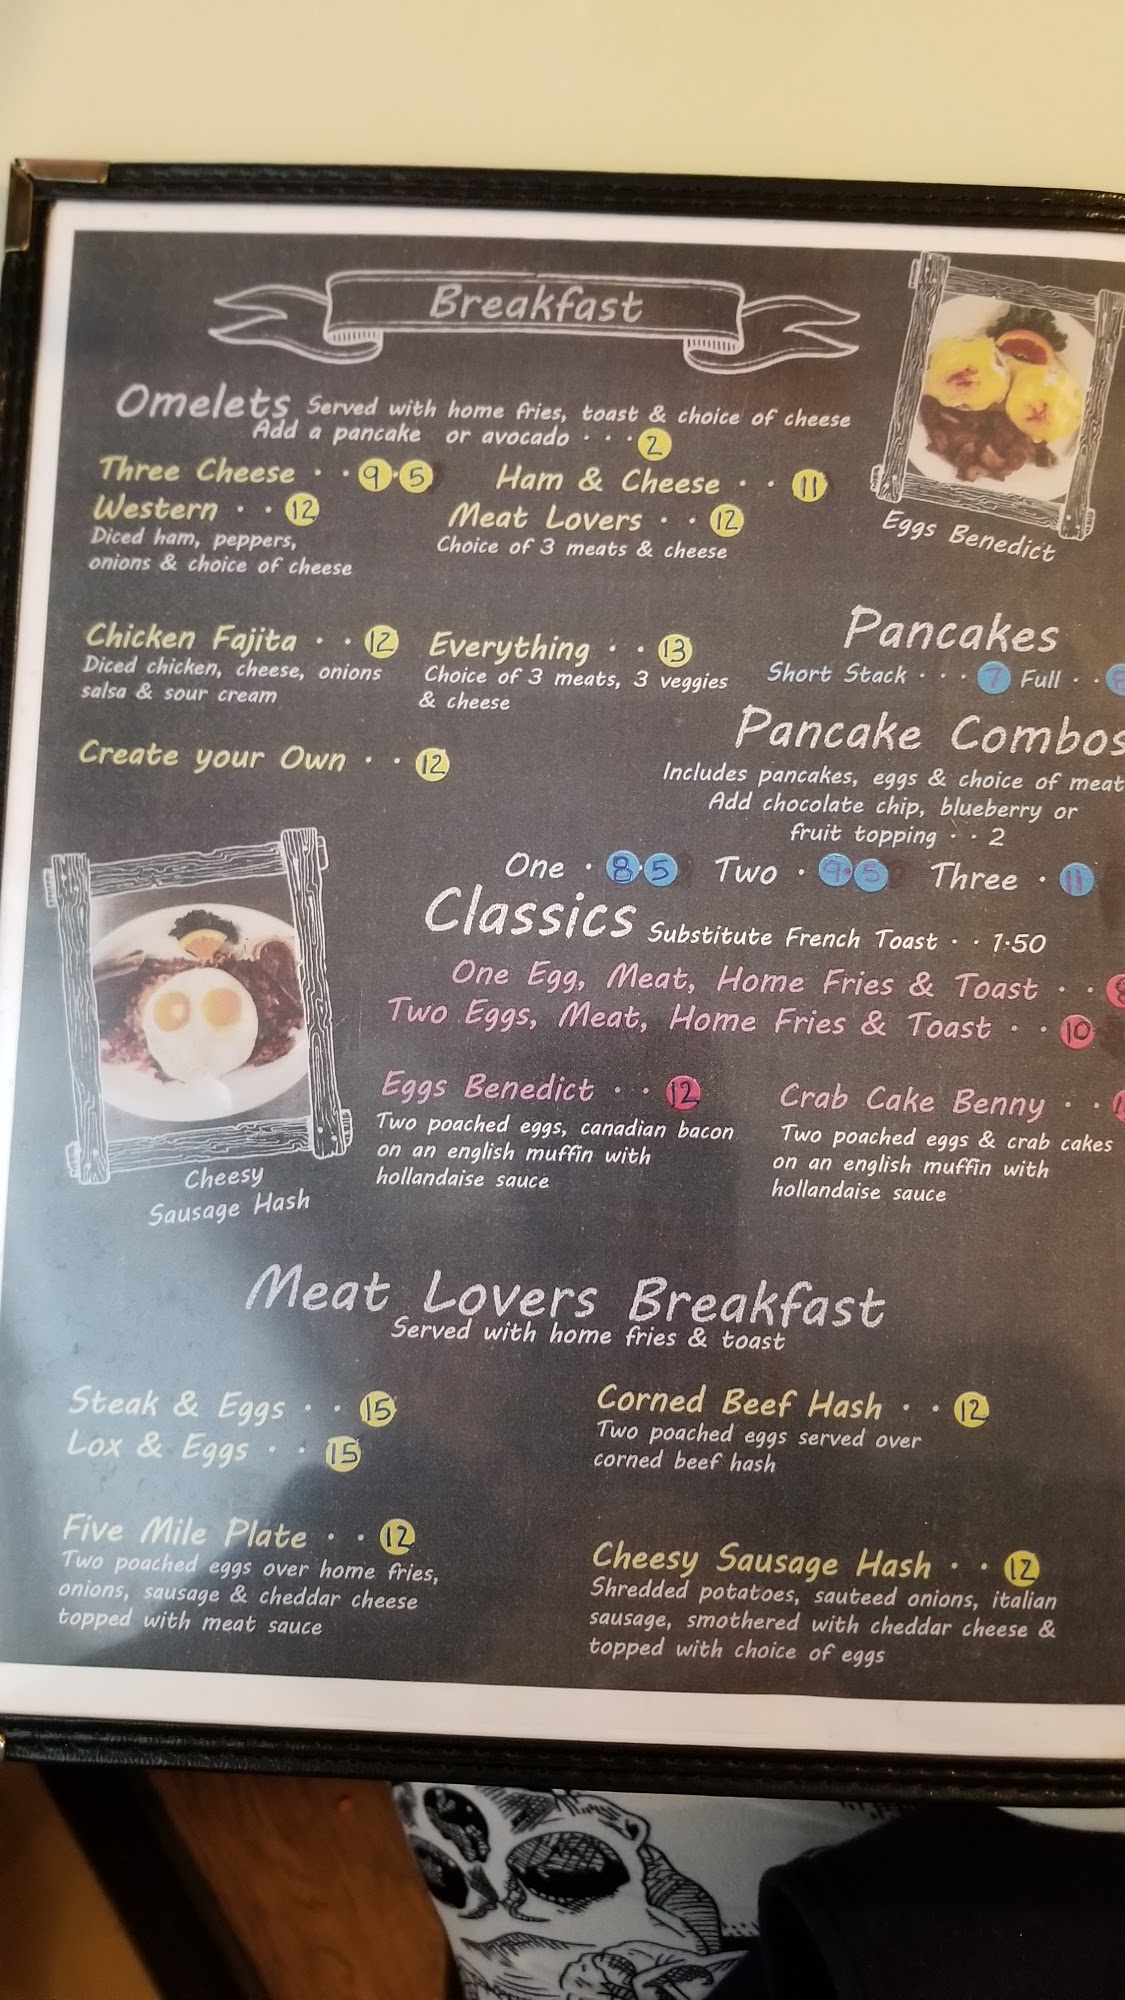 Breakfast
Omelets Served with home fries, toast & choice of cheese
Add a pancake or avocado · · · 2
Three Cheese · · 9·5 Ham & Cheese · · 11
Western · · 12 Meat Lovers · · 12
Diced ham, peppers, Choice of 3 meats & cheese
onions & choice of cheese
Eggs Benedict
Chicken Fajita · · 12 Everything · · 13
Diced chicken, cheese, onions Choice of 3 meats, 3 veggies
salsa & sour cream & cheese
Create your Own · · 12
Pancakes
Short Stack · · · 7 Full · ·
Pancake Combos
Includes pancakes, eggs & choice of meat
Add chocolate chip, blueberry or
fruit topping · · 2
One · 8·5 Two · 9·5 Three · 11
Classics Substitute French Toast · · 1·50
One Egg, Meat, Home Fries & Toast · ·
Two Eggs, Meat, Home Fries & Toast · · 10
Eggs Benedict · · 12
Two poached eggs, canadian bacon
on an english muffin with
hollandaise sauce
Crab Cake Benny · ·
Two poached eggs & crab cakes
on an english muffin with
hollandaise sauce
Cheesy
Sausage Hash
Meat Lovers Breakfast
Served with home fries & toast
Steak & Eggs · · 15
Lox & Eggs · · 15
Corned Beef Hash · · 12
Two poached eggs served over
corned beef hash
Five Mile Plate · · 12
Two poached eggs over home fries,
onions, sausage & cheddar cheese
topped with meat sauce
Cheesy Sausage Hash · · 12
Shredded potatoes, sauteed onions, italian
sausage, smothered with cheddar cheese &
topped with choice of eggs